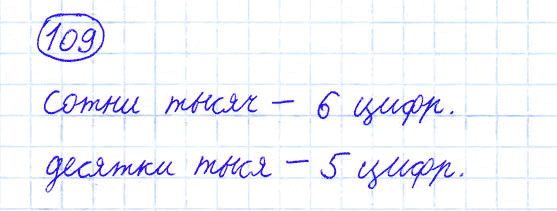 109
сотни тысяч – 6 цифр.
десятки тыся – 5 цифр.